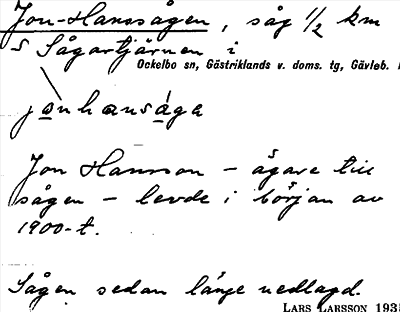 Jon-Hanssågen, såg 1/2 km
S Sågartjärnen i
Ockelbo sn, Gästriklands v. doms. tg, Gävleb.
jonhansåga
Jon Hansson - ägare till
sågen - levde i början av
1900-t.
Sågen sedan länge nedlagd.
LARS LARSSON 193